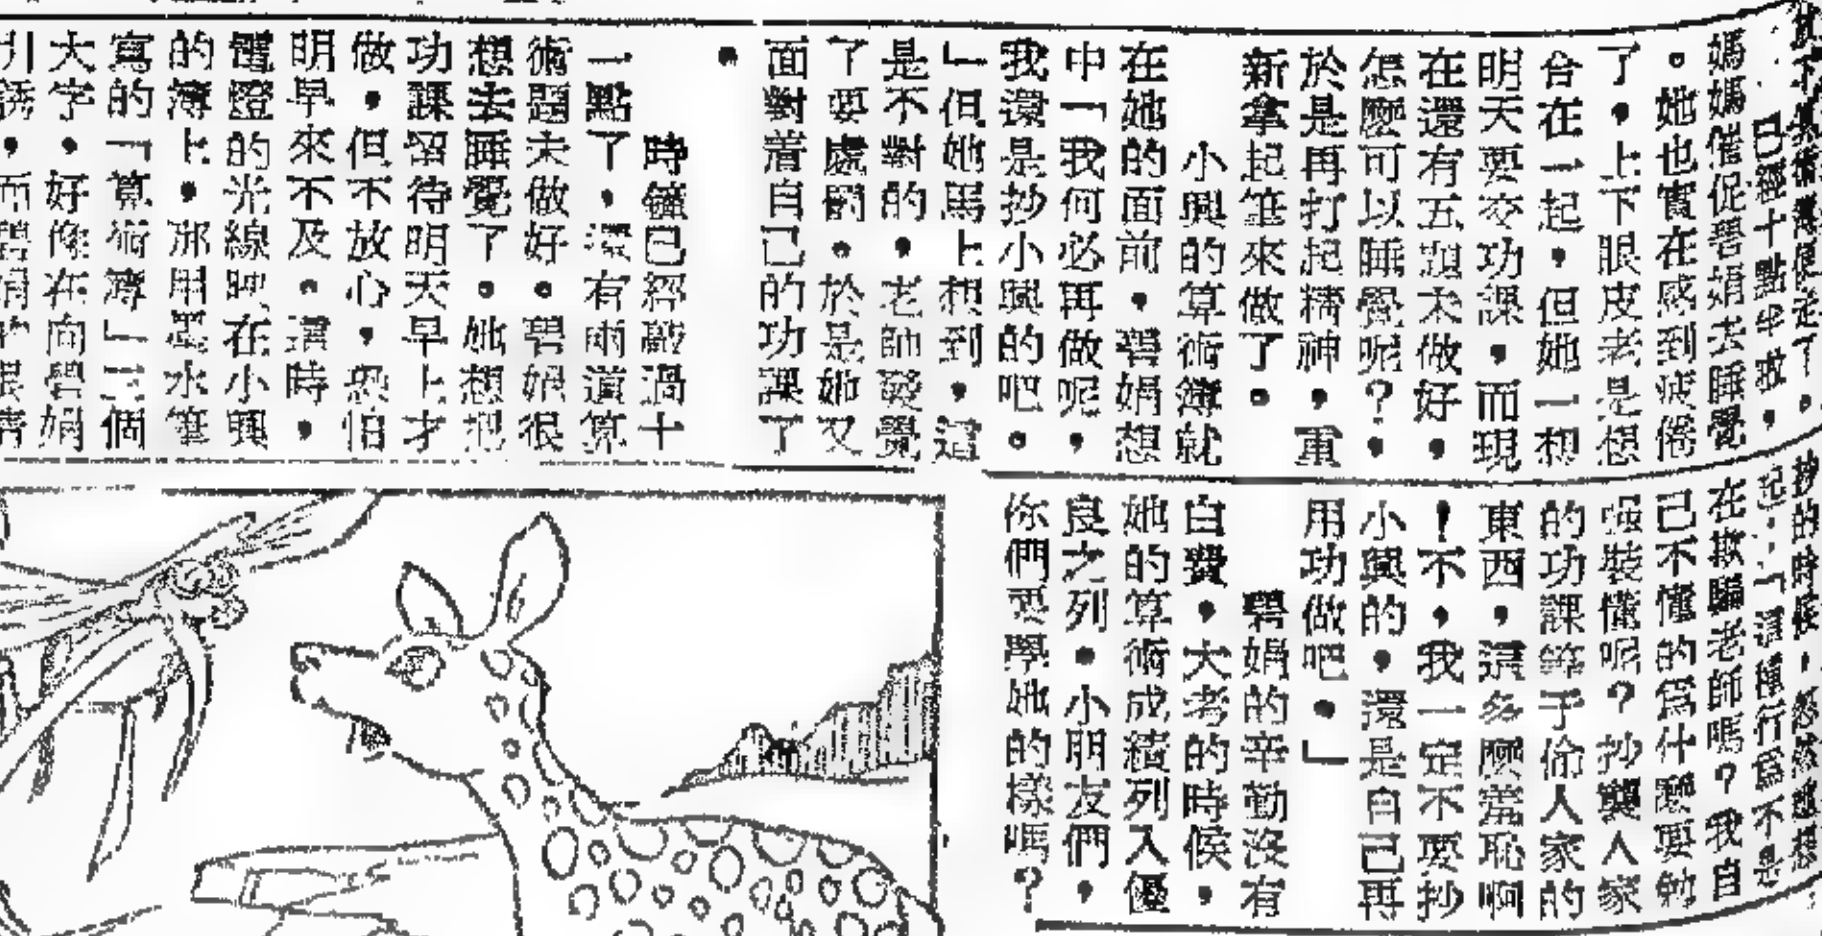 已經十點半啦，
媽媽催促碧娟去睡覺
。她也實在感到疲倦
了，上下眼皮老是想
合在一起，但她一想
明天要交功課，而現
在還有五題未做好，
怎麼可以睡覺呢？，
於是再打起精神，重
新拿起筆來做了。
小興的算術簿就
在她的面前，碧娟想
中「我何必再做呢，
我還是抄小興的吧。
」但她馬上想到，這
是不對的，老師發覺
了要處罰。於是她又
面對着自己的功課了
。
時鐘已經敲過十
一點了，還有兩道算
術題未做好。碧娟很
想去睡覺了。她想把
功課留待明天早上才
做，但不放心，恐怕
明早來不及。這時，
電燈的光線映在小興
的簿上，那用墨水筆
寫的「算術簿」三個
大字，好像在向碧娟
引誘，而碧娟的眼睛
抄的時候，忽然
在欺騙老師嗎？我自
己不懂的爲什麼要勉
強裝懂呢？抄襲人家
的功課等于偷人家的
東西，這多麼羞恥啊
！不，我一定不要抄
小興的，還是自己再
用功做吧。」
碧娟的辛勤沒有
白費，大考的時候，
她的算術成績列入優
良之列。小朋友們，
你們要學她的樣嗎？